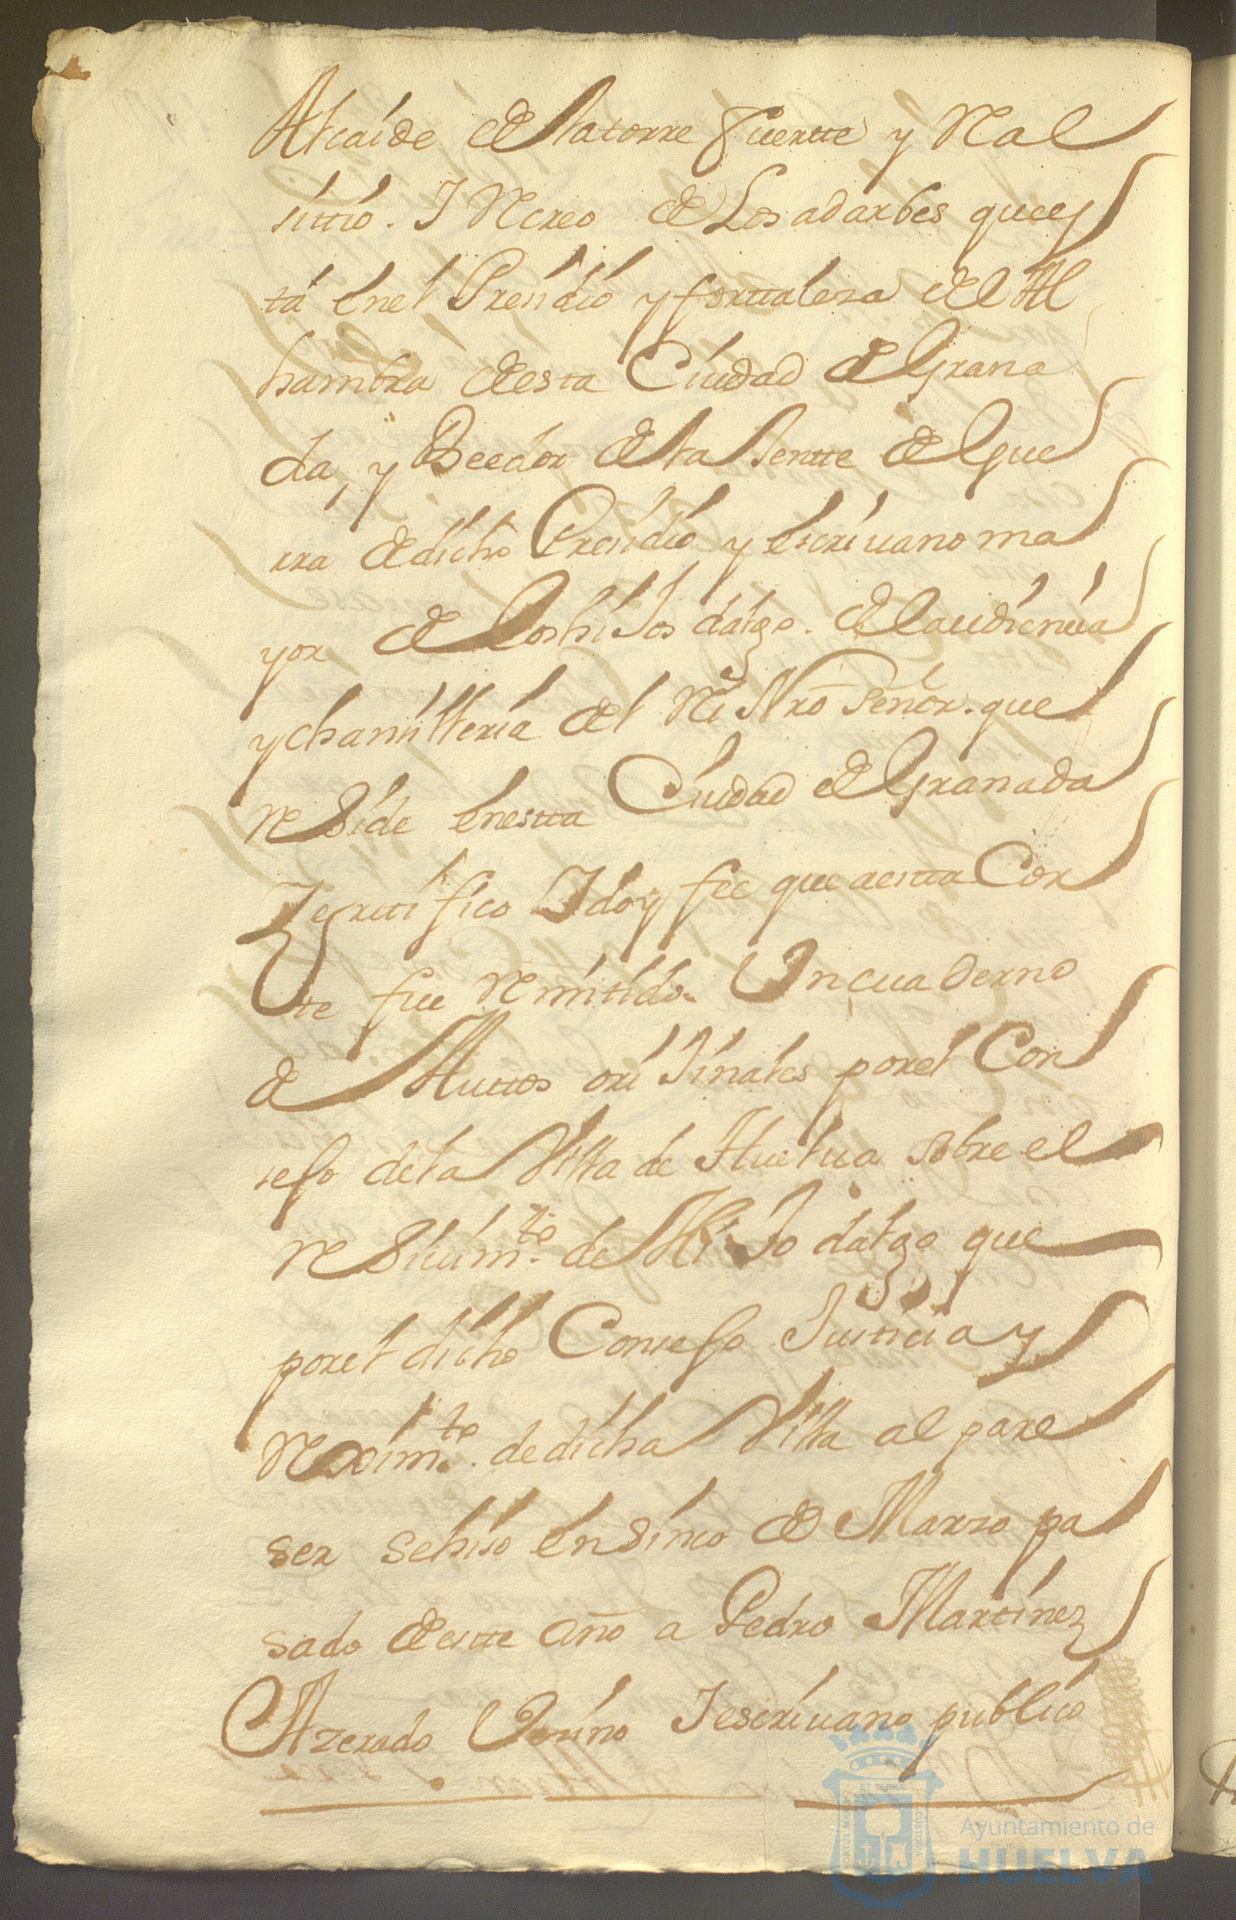 Alcaide de la torre fuertte y Real
sittio. I Recreo de Los adarbes que es
tá enel Presidio y forttaleza del Al
hambra de esta Ciudad de Grana
da, y Beedor de la Jentte de Gue
rra de dicho Presidio y escriuano ma
yor de los hiJos dalgo. de la audiencia
y chancilleria del Rei Nro Señor. que
ReSide en estta Ciudad de Granada
Zerttifico I doy fee que a estta Cor
te fue Remitido. Un cuaderno
de Auttos oriJinales por el Con
sejo de la Villa de Huelua sobre el
ReSiuimto. de HiJo dalgo que
por el dicho Consejo Justicia y
Reximto. de dicha Villa al pare
ser se hiso en Sinco de Marzo pa
sado de estte año a Pedro Martinez
Azerado Vesino I escriuano publico
ET TERRAE
PORTUS MARIS
CUSTODIA
Ayuntamiento de
HUELVA